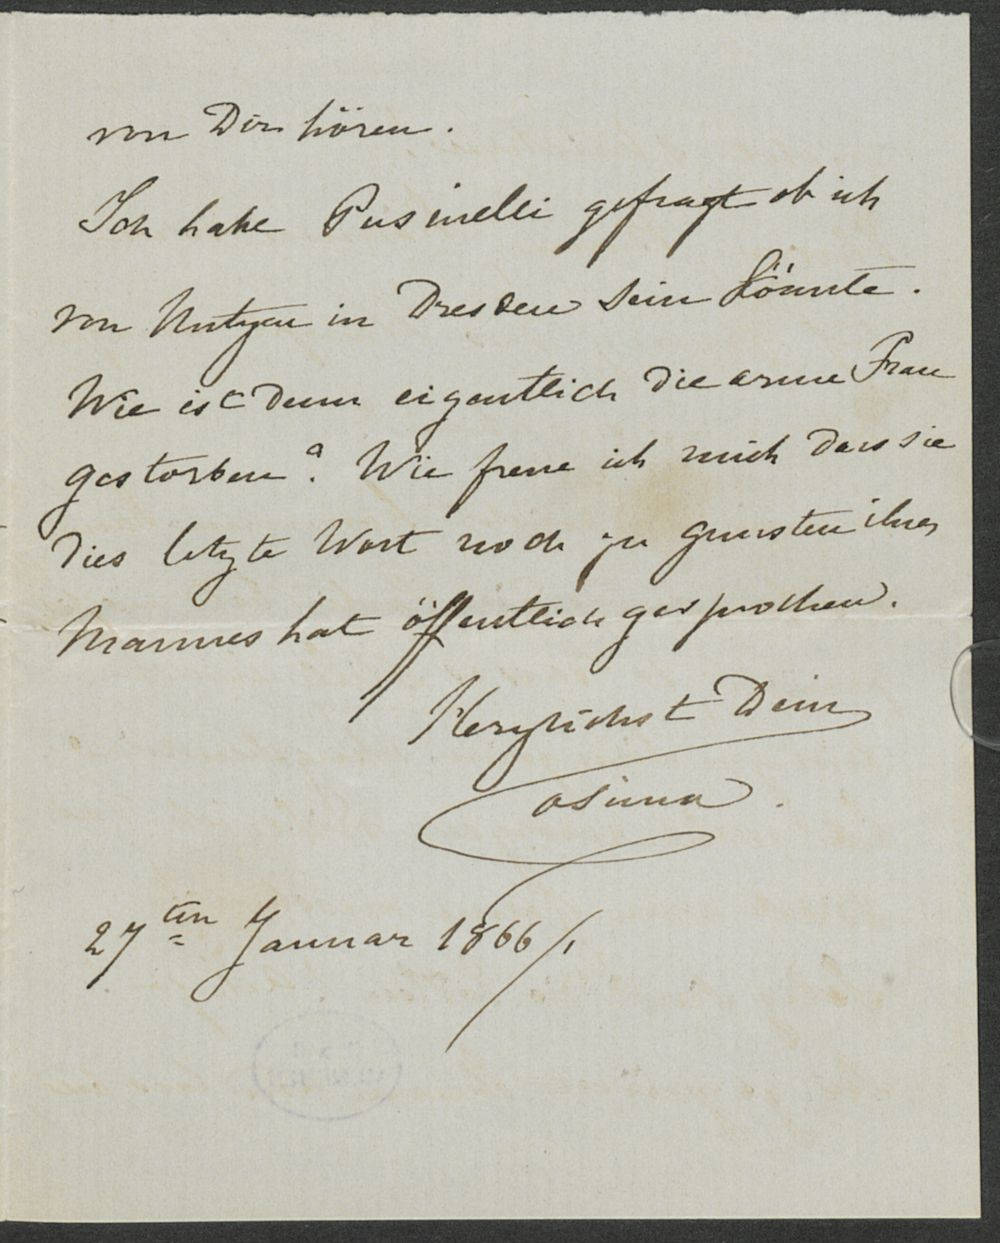 von Dir hören.
Ich habe Pusinelli gefragt ob ich
von Nutzen in Dresden sein könnte.
Wie ist denn eigentlich die arme Frau
gestorben? Wie freue ich mich dass sie
dies letzte Wort noch zu gunsten ihres
Mannes hat öffentlich gesprochen.
Herzlichst Dein
Cosima.
27ten Januar 1866/.